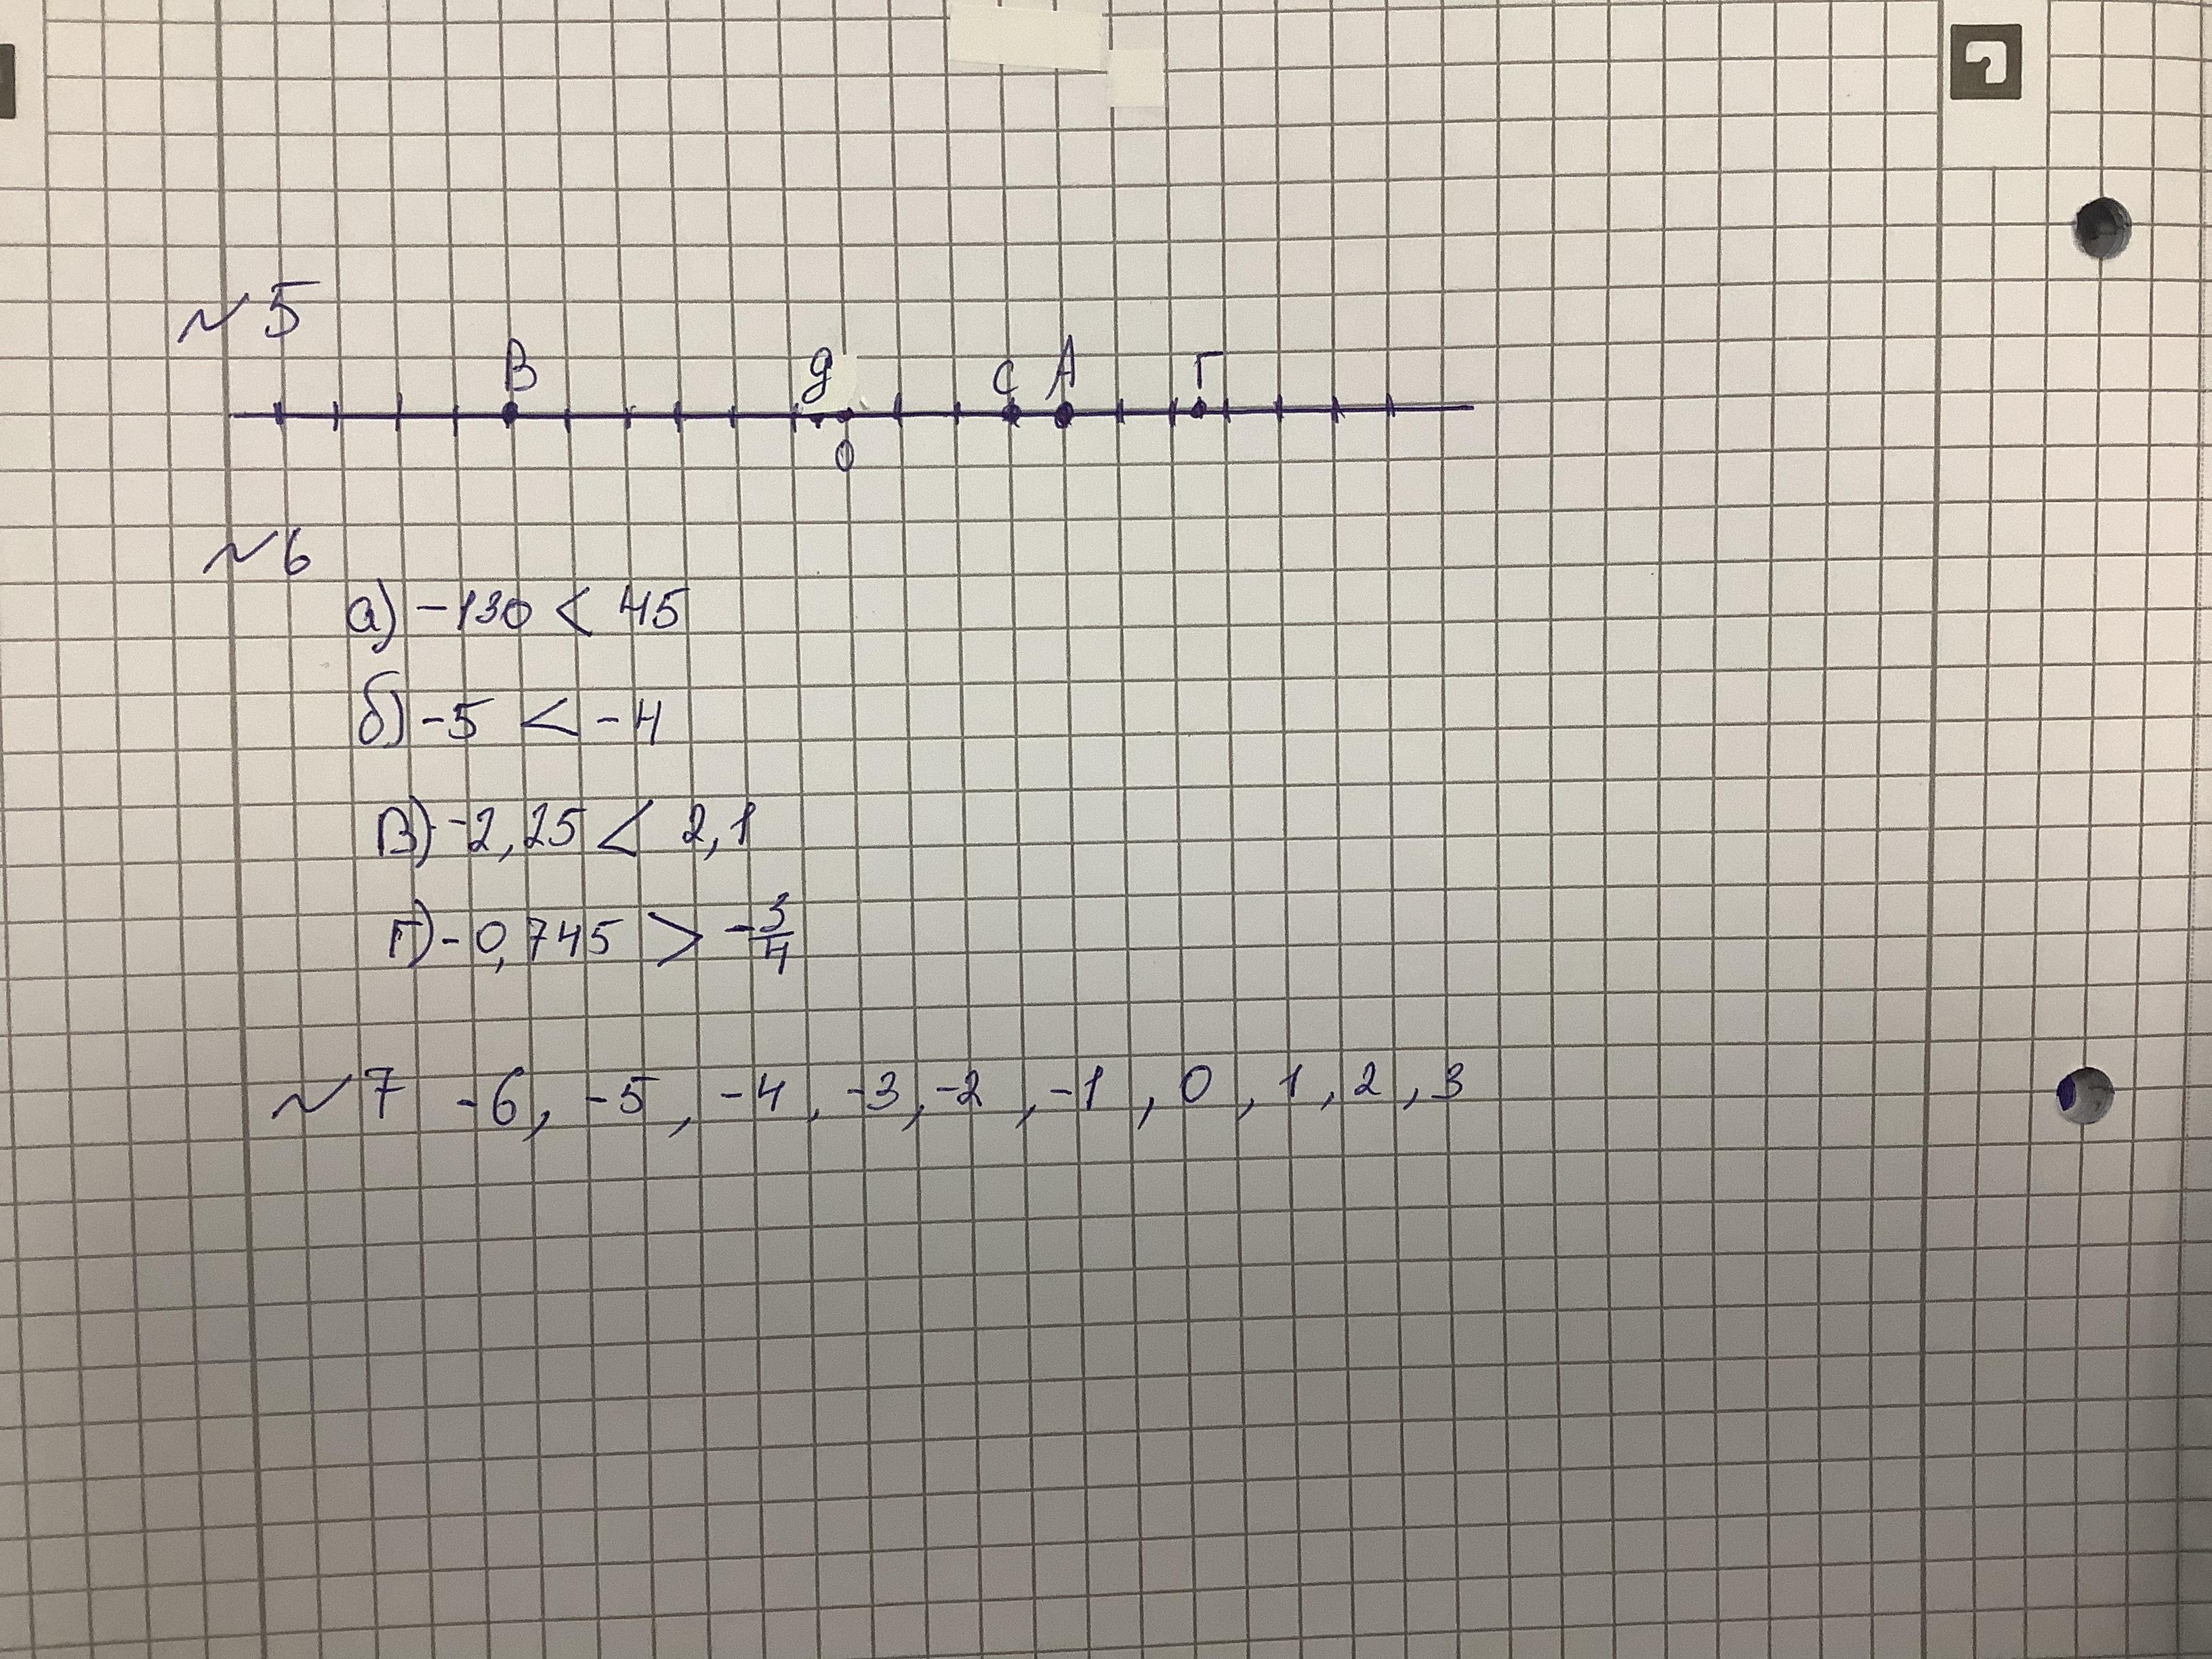 ~5
В g С А Г
0
~6
а) -130 < 45
б) -5 < -4
В) -2,25 < 2,1
Г) -0,745 > -3/4
~7 -6, -5, -4, -3, -2, -1, 0, 1, 2, 3